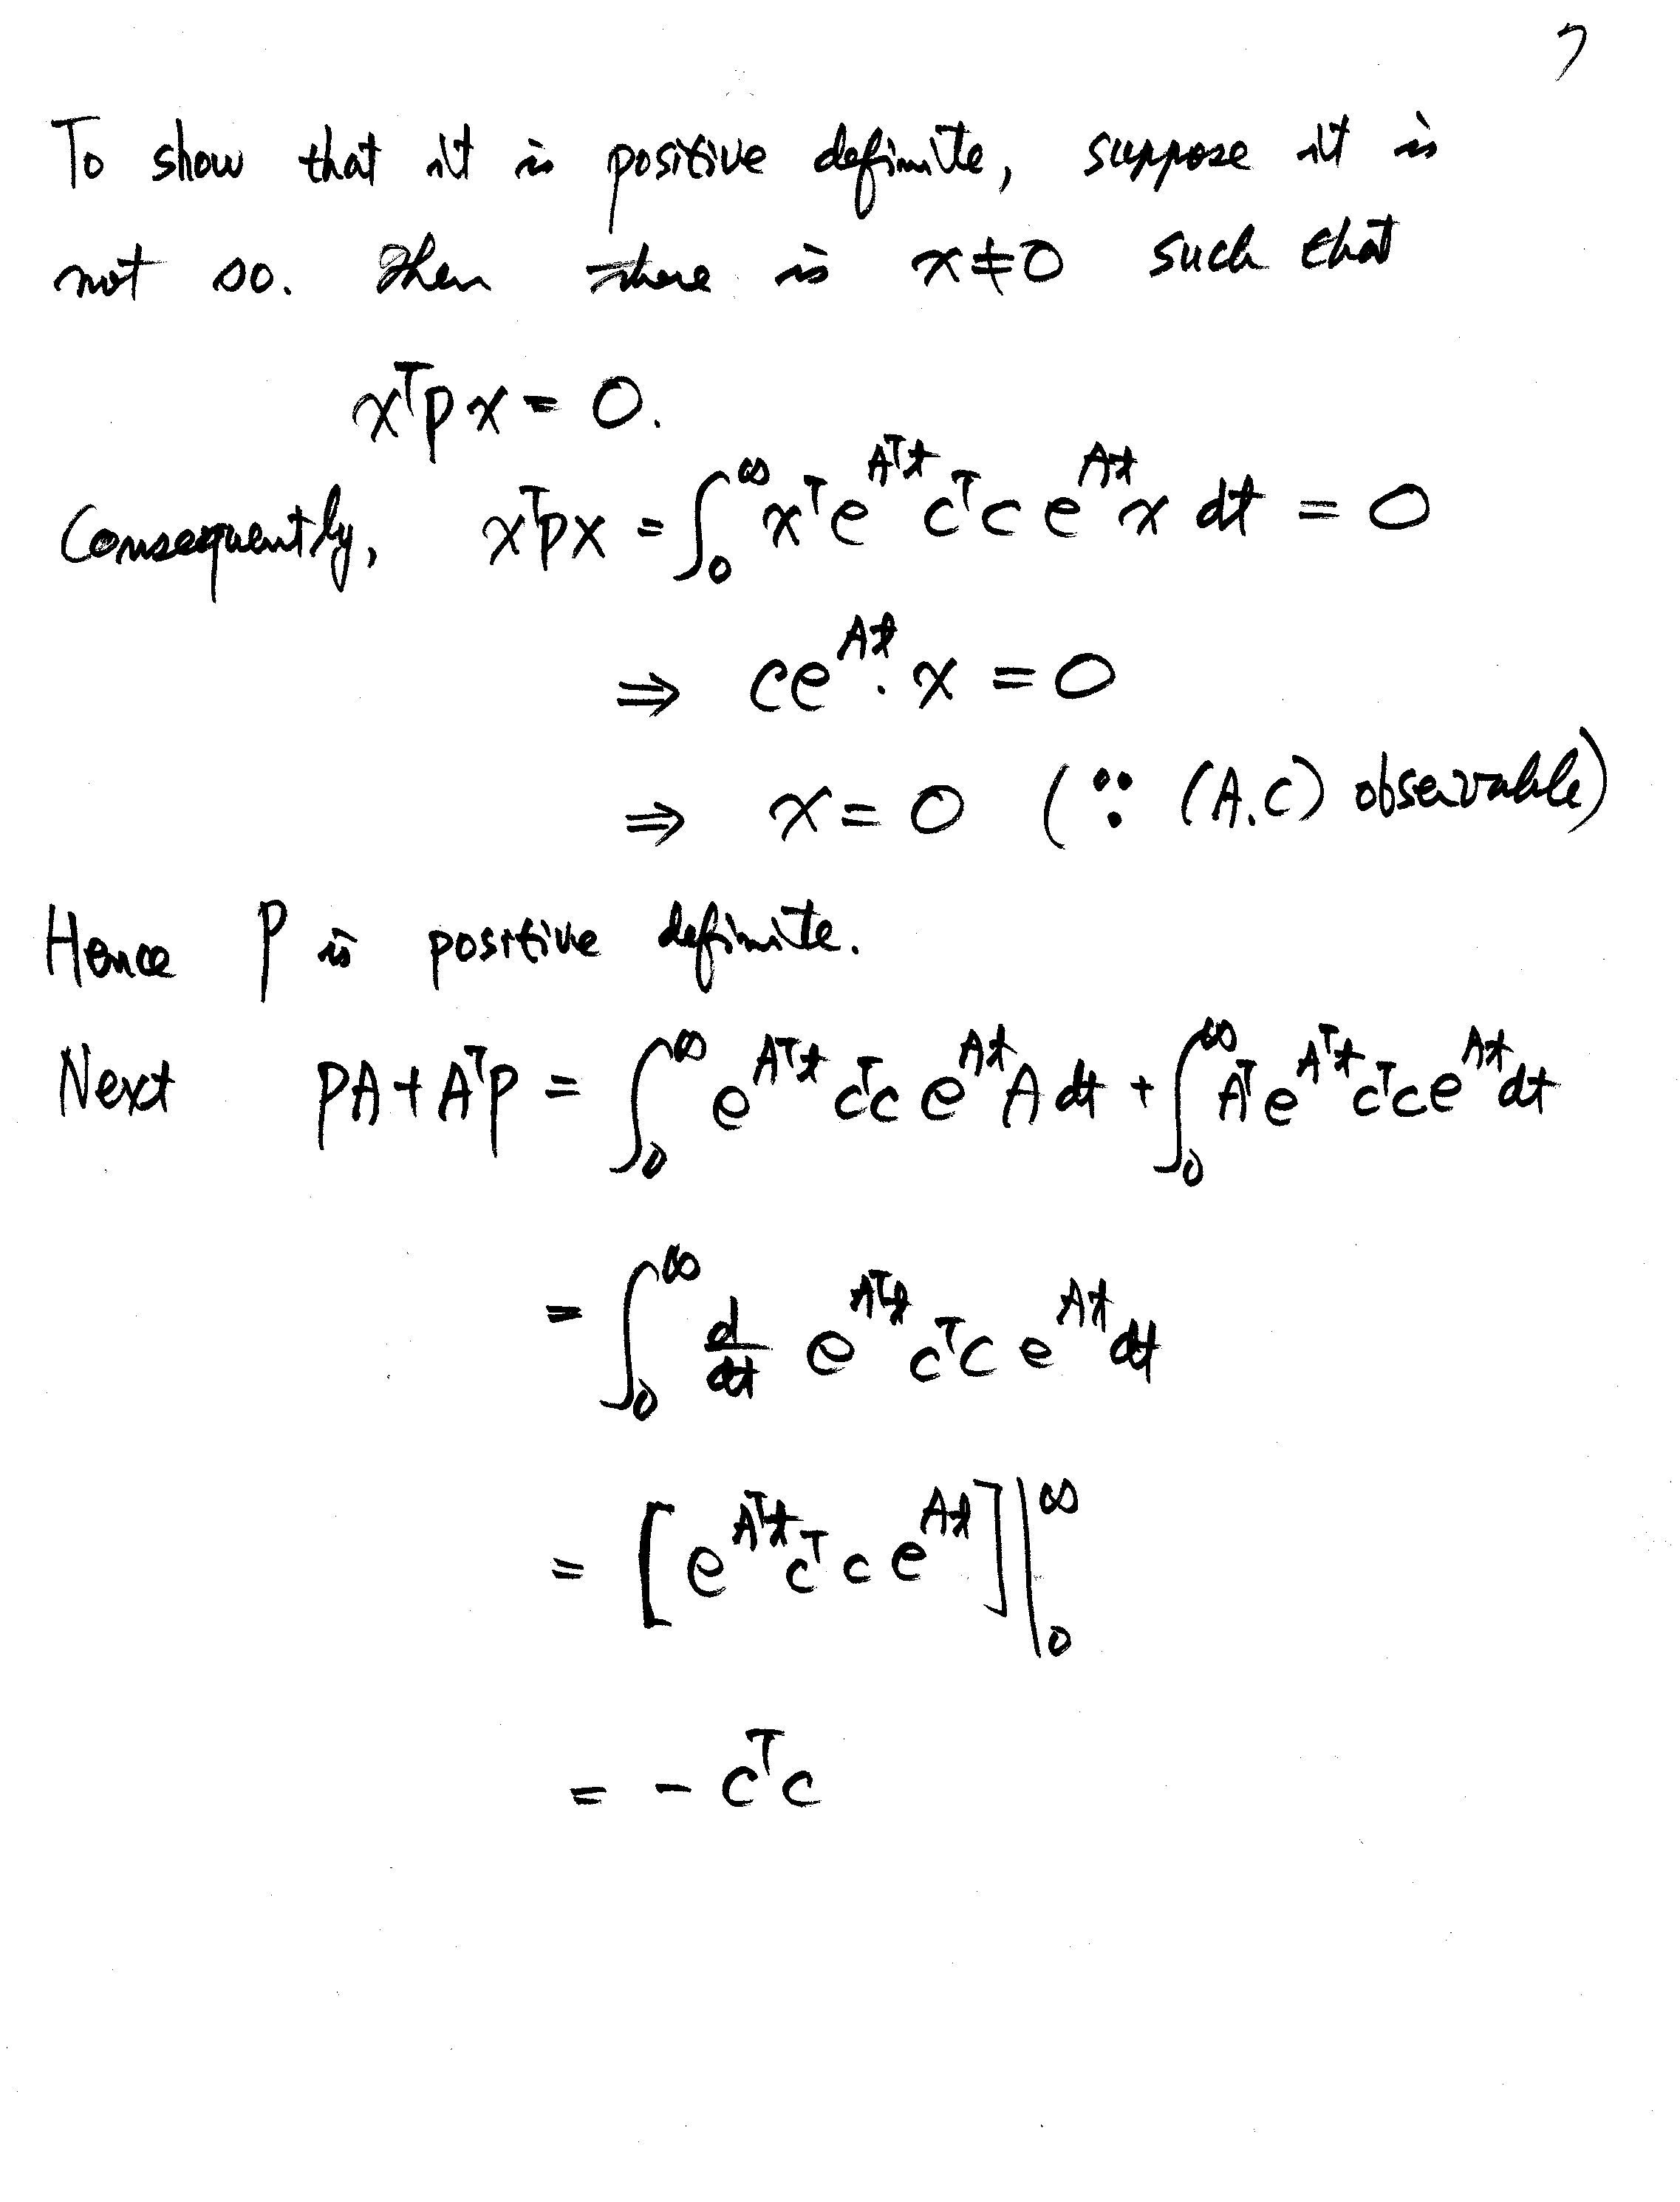 7
To show that it is positive definite, suppose it is
not so. Then there is x≠0 such that
xᵀPx = 0.
Consequently, xᵀPx = ∫₀^∞ xᵀe^{Aᵀt} CᵀC e^{At} x dt = 0
⇒ Ce^{At}·x = 0
⇒ x = 0 (∵ (A.C) observable)
Hence P is positive definite.
Next PA + AᵀP = ∫₀^∞ e^{Aᵀt} CᵀC e^{At} A dt + ∫₀^∞ Aᵀe^{Aᵀt} CᵀC e^{At} dt
= ∫₀^∞ d/dt e^{Aᵀt} CᵀC e^{At} dt
= [e^{Aᵀt} CᵀC e^{At}]|₀^∞
= - CᵀC